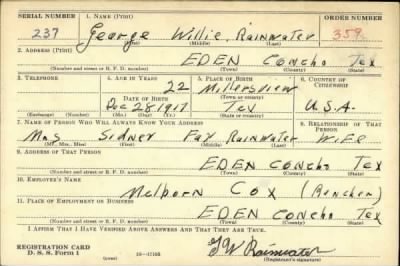 SERIAL NUMBER 1. NAME (Print) ORDER NUMBER
237 George Willie Rainwater 359
(First) (Middle) (Last)
2. ADDRESS (Print)
EDEN Concho Tex
(Number and street or R. F. D. number) (Town) (County) (State)
3. TELEPHONE 4. AGE IN YEARS 5. PLACE OF BIRTH 6. COUNTRY OF CITIZENSHIP
22 Millersview
DATE OF BIRTH (Town or county)
Dec 28 1917 Tex U.S.A.
(Exchange) (Number) (Mo.) (Day) (Yr.) (State or country)
7. NAME OF PERSON WHO WILL ALWAYS KNOW YOUR ADDRESS 8. RELATIONSHIP OF THAT PERSON
Mrs Sidney Fay Rainwater WIFE
(Mr., Mrs., Miss) (First) (Middle) (Last)
9. ADDRESS OF THAT PERSON
EDEN Concho Tex
(Number and street or R. F. D. number) (Town) (County) (State)
10. EMPLOYER'S NAME
Melborn Cox (Rancher)
11. PLACE OF EMPLOYMENT OR BUSINESS
EDEN Concho Tex
(Number and street or R. F. D. number) (Town) (County) (State)
I AFFIRM THAT I HAVE VERIFIED ABOVE ANSWERS AND THAT THEY ARE TRUE.
REGISTRATION CARD
D. S. S. Form 1 G W Rainwater
(Registrant's signature)